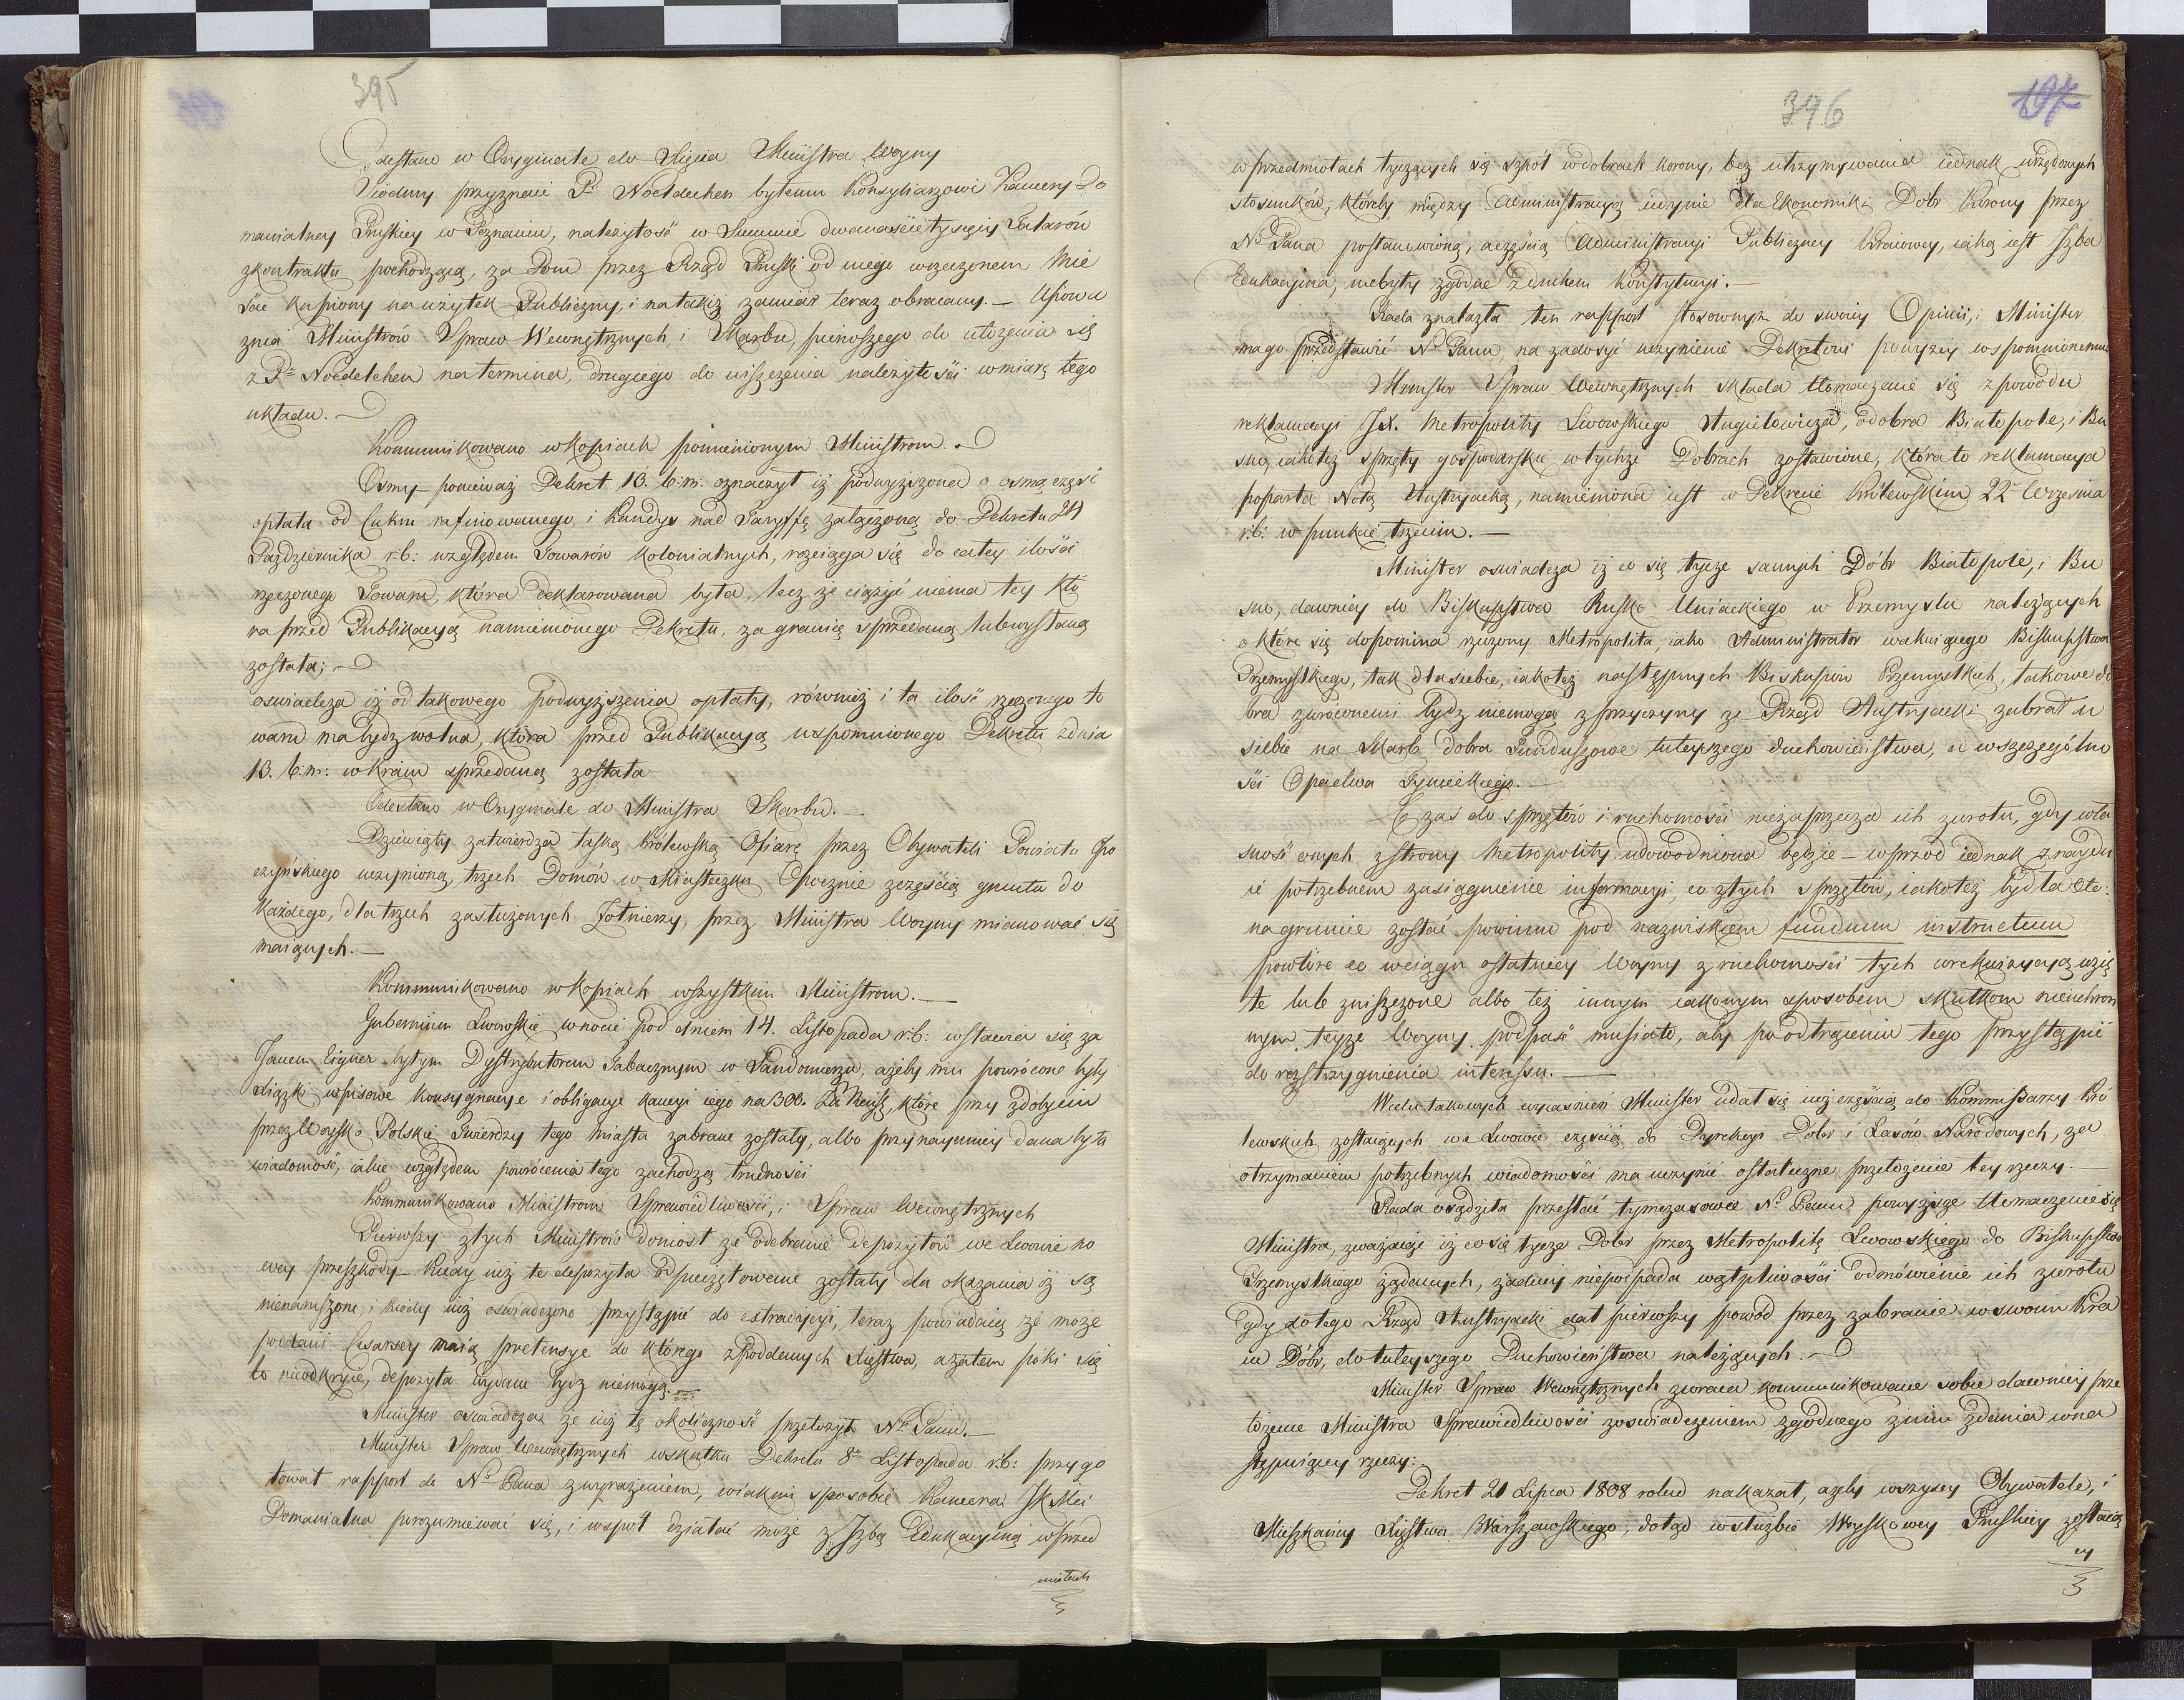 395
Odesłano w Oryginale do Xięcia Ministra Woyny
Siódmy przyznaie P. Noeldechen byłemu Konsyliarzowi Kamery Do
manialney Pruskiey w Poznaniu, należytość w Summie dwanaście tysięcy Talarów
zkontraktu pochodzącą, za Dom przez Rząd Pruski od niego wrzeczonem Mie
ście kupiony na użytek Publiczny, i na takiż zamiar teraz obracany. — Upowa
żnia Ministrów Spraw Wewnętrznych, i Skarbu, pierwszego do ułożenia się
z P. Noeldechen na termina, drugiego do uiszczenia należytości wmiarę tego
układu. —
Kommunikowano w kopiach pomienionym Ministrom.
Osmy — ponieważ Dekret 13. b. m. oznaczył iż podwyższona o osmą część
opłata od Cukru rafinowanego, i Kandys nad Taryffę załączoną do Dekretu 24
Października r. b: względem Towarów kolonialnych, rozciąga się do całey ilości
rzeczonego Towaru, która deklarowana była, lecz że ciążyć niema tey któ
ra przed Publikacyą namienionego Dekretu, za granicę sprzedaną lub wysłaną
została; —
oświadcza iż od takowego podwyższenia opłaty, również i ta ilość rzeczonego to
waru ma bydź wolna, która przed Publikacyą wspomnionego Dekretu z dnia
13. b. m: w kraiu sprzedaną została
Odesłano w Oryginale do Ministra Skarbu. —
Dziewiąty zatwierdza łaską Królewską Ofiarę przez Obywateli Powiatu Opo
czyńskiego uczynioną, trzech Domów w Miasteczku Opocznie z częścią gruntu do
każdego, dla trzech zasłużonych Żołnierzy, przez Ministra Woyny mianować się
maiących. —
Kommunikowano w kopiach wszystkim Ministrom. —
Gubernium Lwowskie w nocie pod dniem 14. Listopada r. b: wstawia się za
Janem Eigner byłym Dystrybutorem Tabacznym w Sandomierzu, ażeby mu powrócone były
Xiążki wpisowe konsygnacye i obligacye kaucyi iego na 300. , które przy zdobyciu
przez Woysko Polskie Twierdzy tego miasta zabrane zostały, albo przynaymniey dana była
wiadomość, iakie względem powrócenia tego zachodzą trudności
Kommunikowano Ministrom Sprawiedliwości, i Spraw Wewnętrznych
Pierwszy z tych Ministrów doniosł że odebranie depozytów we Lwowie no
wey przeszkody — kiedy iuż te depozyta odpieczętowane zostały dla okazania iż są
nienaruszone, i kiedy iuż oświadczono przystąpić do extradycyi, teraz powiadaią że może
poddani Cesarscy maią pretensye do którego z Poddanych Xięstwa, a zatem póki się
to nieodkryie, depozyta wydane bydź niemogą. —
Minister oświadcza że iuż tę okoliczność przełożył N. Panu. —
Minister Spraw Wewnętrznych wskutku Dekretu 8. Listopada r. b: przygo
tował rapport do N. Pana z wyrażeniem, w iakim sposobie Kamera JKMci
Domanialna porozumiewać się, i wspól działać może z Izbą Edukacyiną wprzed
miotach
396
197
w przedmiotach tyczących się szkół w dobrach korony, bez utrzymywania iednak urzędowych
stosunków, któreby między Administracyą iedynie dla Ekonomiki Dóbr Korony przez
N. Pana postanowioną, a częścią Administracyi Publiczney Kraiowey, iaką iest Izba
Edukacyina, niebyły zgodne z duchem Konstytucyi. —
Rada znalazła ten rapport stosownym do swoiey Opinii, i Minister
ma go przedstawić N. Panu, na zadosyć uczynienie Dekretowi powyżey wspomnionemu
Minister Spraw Wewnętrznych składa tłomaczenie się z powodu
reklamacyi JX. Metropolity Lwowskiego Angielowicza, o dobra Białopole, i Bu
sno, iakoteż sprzęty gospodarskie w tychże Dobrach zostawione, która to reklamacya
poparta Notą Austryacką, namieniona iest w Dekrecie Królewskim 22 Września
r. b: w punkcie trzecim. —
Minister oświadcza iż co się tycze samych Dóbr Białopole, i Bu
sno, dawniey do Biskupstwa Rusko Uniackiego w Przemyślu należących
o które się dopomina rzeczony Metropolita, iako Administrator wakuiącego Biskupstwa
Przemyslkiego, tak dla siebie, iakoteż następnych Biskupów Przemyslkich, takowe do
bra zwróconemi bydź niemogą z przyczyny że Rząd Austryacki zabrał u
siebie na Skarb dobra Funduszowe tuteyszego duchowieństwa, a w szczególno
ści Opactwa Tynieckiego. —
Co zaś do sprzętów i ruchomości niezaprzecza ich zwrotu, gdy wła
sność onych z strony Metropolity udowodniona będzie — wprzód iednak znaydu
ie potrzebnem zasiągnienie informacyi, co z tych sprzętów, iakoteż bydła etc:
na gruncie zostać powinno pod nazwiskiem fundum instructum
powtóre co w ciągu ostatniey Woyny z ruchomości tych w rekwizycyą wzię
te lub zniszczone albo też innym iakowym sposobem skutkom nieuchron
nym teyże Woyny podpaść musiało, aby po odtrąceniu tego przystąpić
do rozstrzygnienia interessu. —
W celu takowych wyiaśnień Minister udał się iuż częścią do Kommissarzy Kró
lewskich zostaiących we Lwowie częścią do Dyrekcyi Dóbr i Lasów Narodowych, za
otrzymaniem potrzebnych wiadomości ma uczynić ostateczne przełożenie tey rzeczy.
Rada osądziła przesłać tymczasowie N. Panu powyższe tłomaczenie się
Ministra, zważaiąc iż co się tycze Dóbr przez Metropolitę Lwowskiego do Biskupstwa
Przemyslkiego żądanych, żadney niepodpada wątpliwości odmówienie ich zwrotu
gdy do tego Rząd Austryacki dał pierwszy powód przez zabranie w swoim Kra
iu Dóbr, do tuteyszego Duchowieństwa należących. —
Minister Spraw Wewnętrznych zwraca kommunikowane sobie dawniey prze
łożenie Ministra Sprawiedliwości z oświadczeniem zgodnego z nim zdania w na
stępuiącey rzeczy:
Dekret 21 Lipca 1808 roku nakazał, ażeby wszyscy Obywatele, i
Mieszkańcy Xięstwa Warszawskiego, dotąd w służbie Woyskowey Pruskiey zostaią
cy